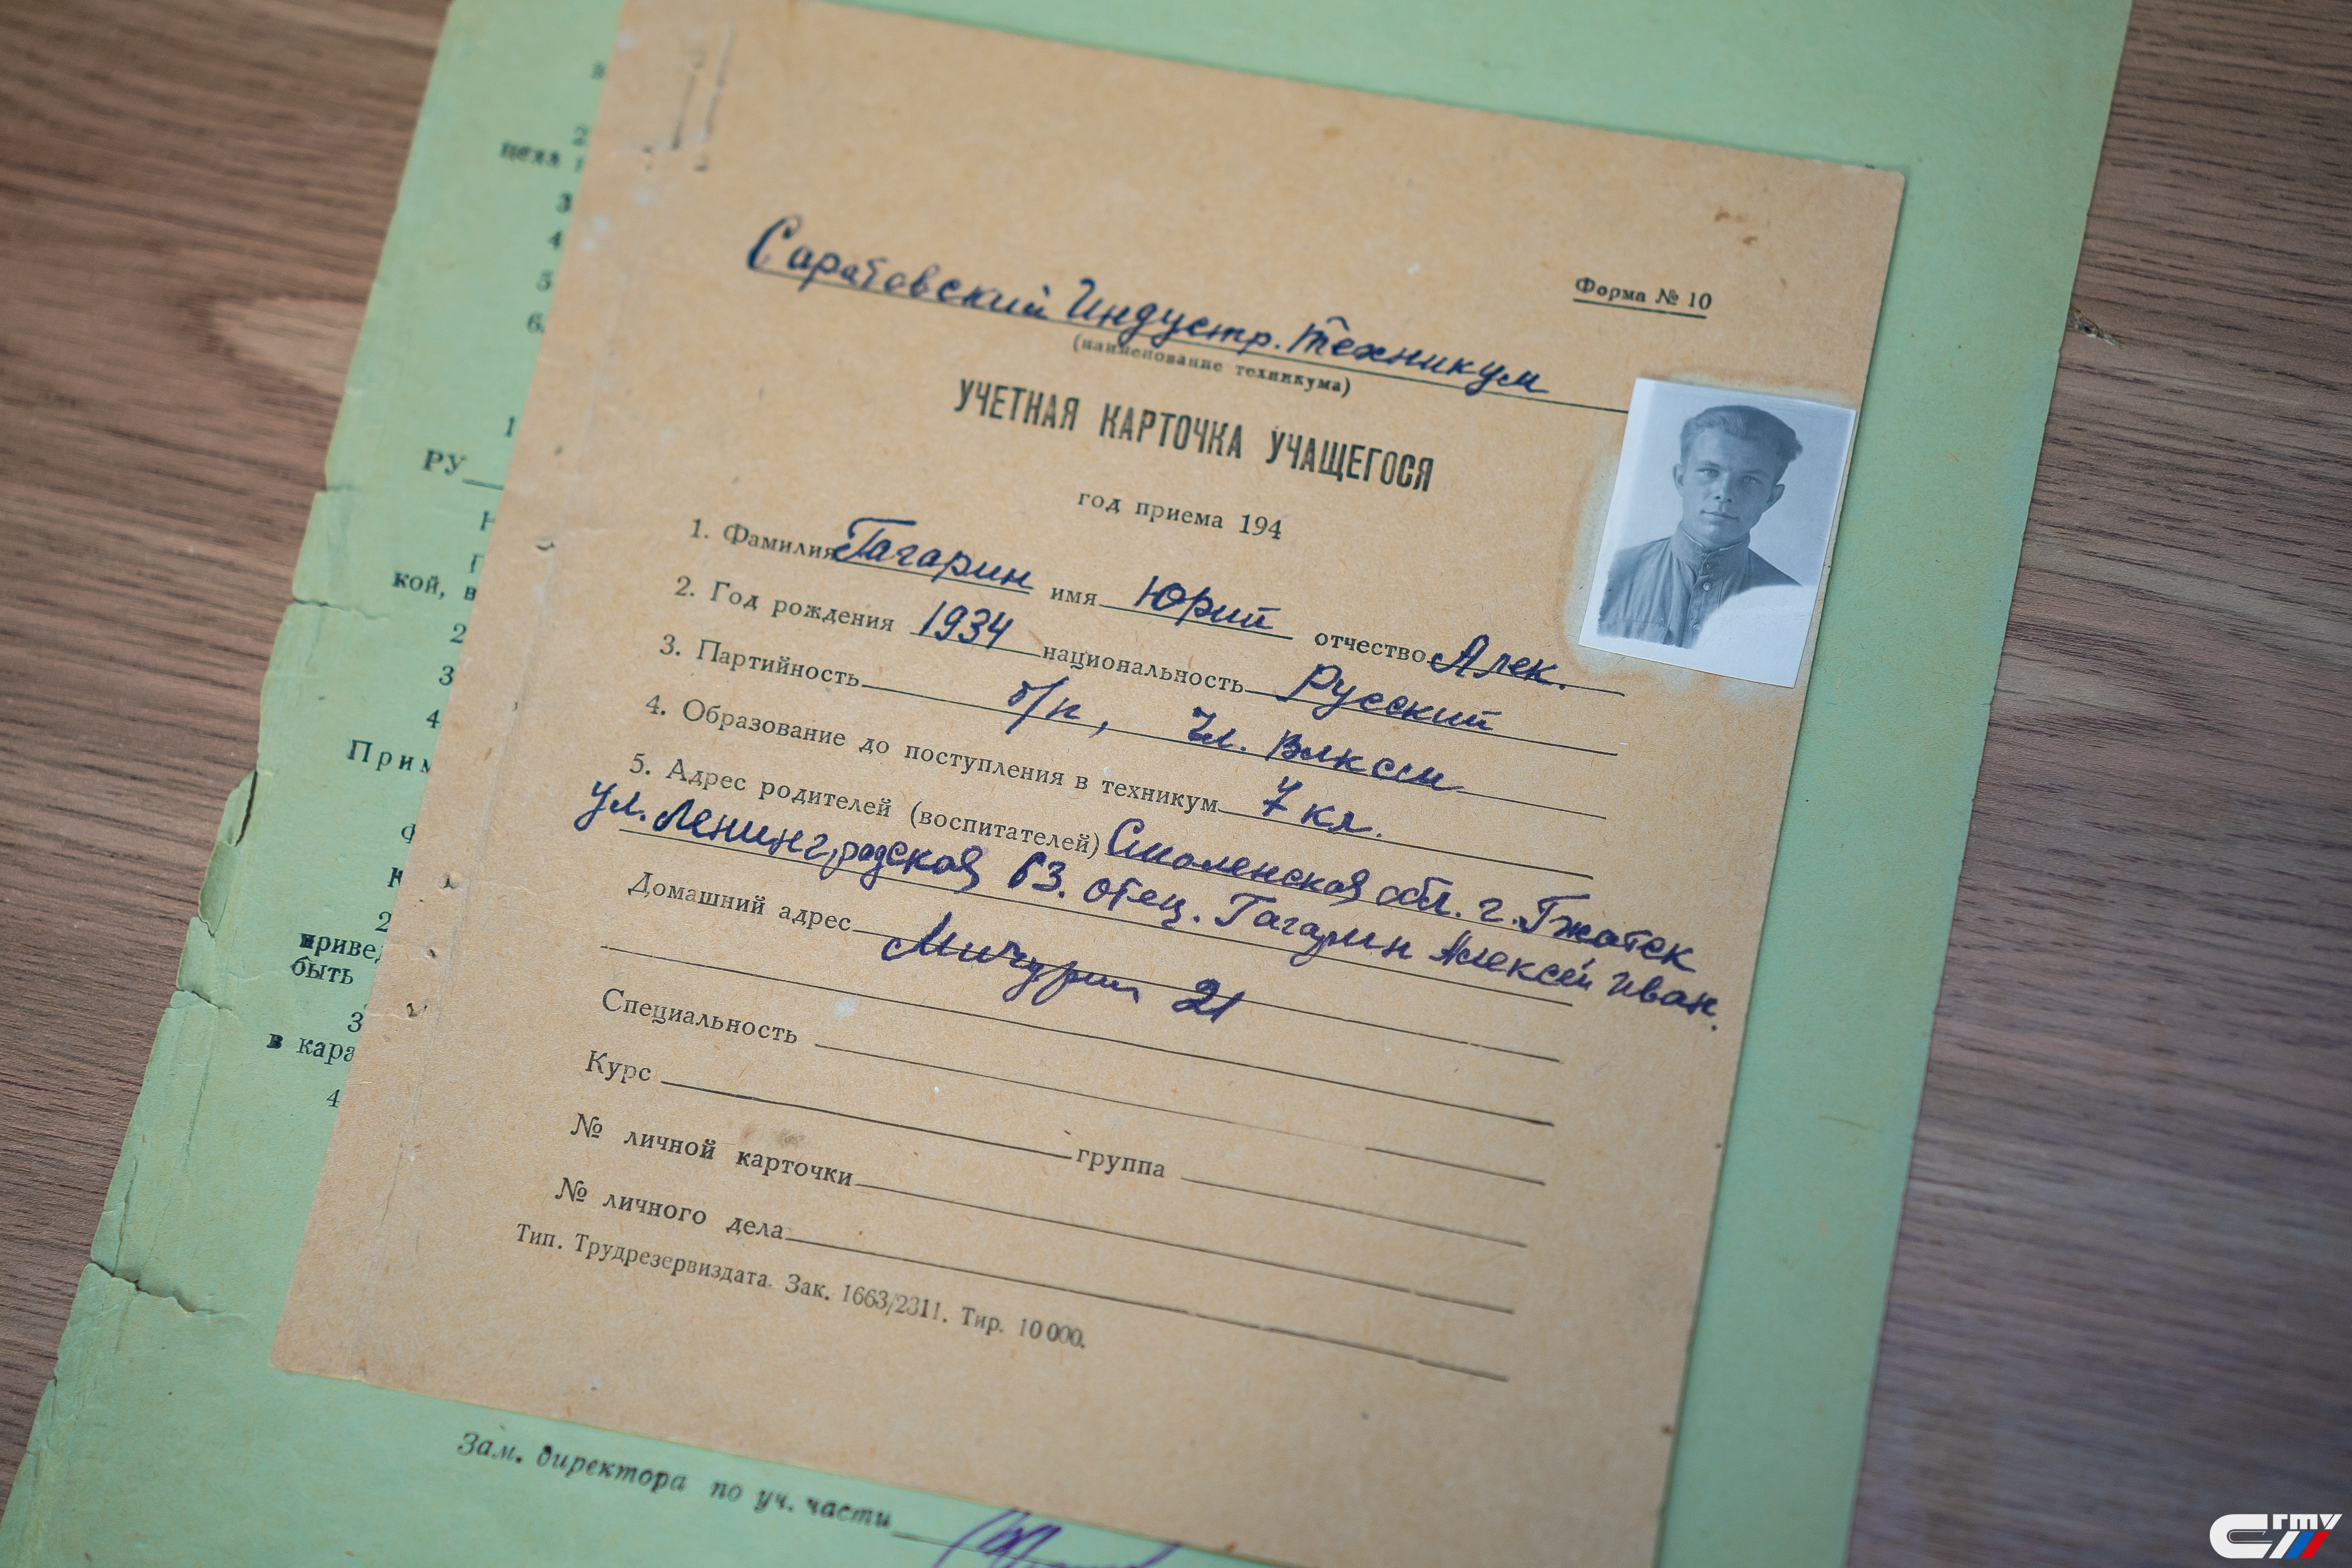 Саратовский Индустр. техникум
(наименование техникума)
Форма № 10
УЧЕТНАЯ КАРТОЧКА УЧАЩЕГОСЯ
год приема 194
1. Фамилия Гагарин имя Юрий отчество Алек.
2. Год рождения 1934 национальность Русский
3. Партийность б/п, Чл. ВЛКСМ
4. Образование до поступления в техникум 7 кл.
5. Адрес родителей (воспитателей) Смоленская обл. г. Гжатск
ул. Ленинградская 63. отец. Гагарин Алексей Иван.
Домашний адрес Мичурин 21
Специальность
Курс группа
№ личной карточки
№ личного дела
Тип. Трудрезервиздата. Зак. 1663/2311. Тир. 10 000.
цеха
3
4
5
6.
1
РУ
кой, в
2
3
4
Прим
2
приве
быть
3
в кара
4
Зам. директора по уч. части
сгту